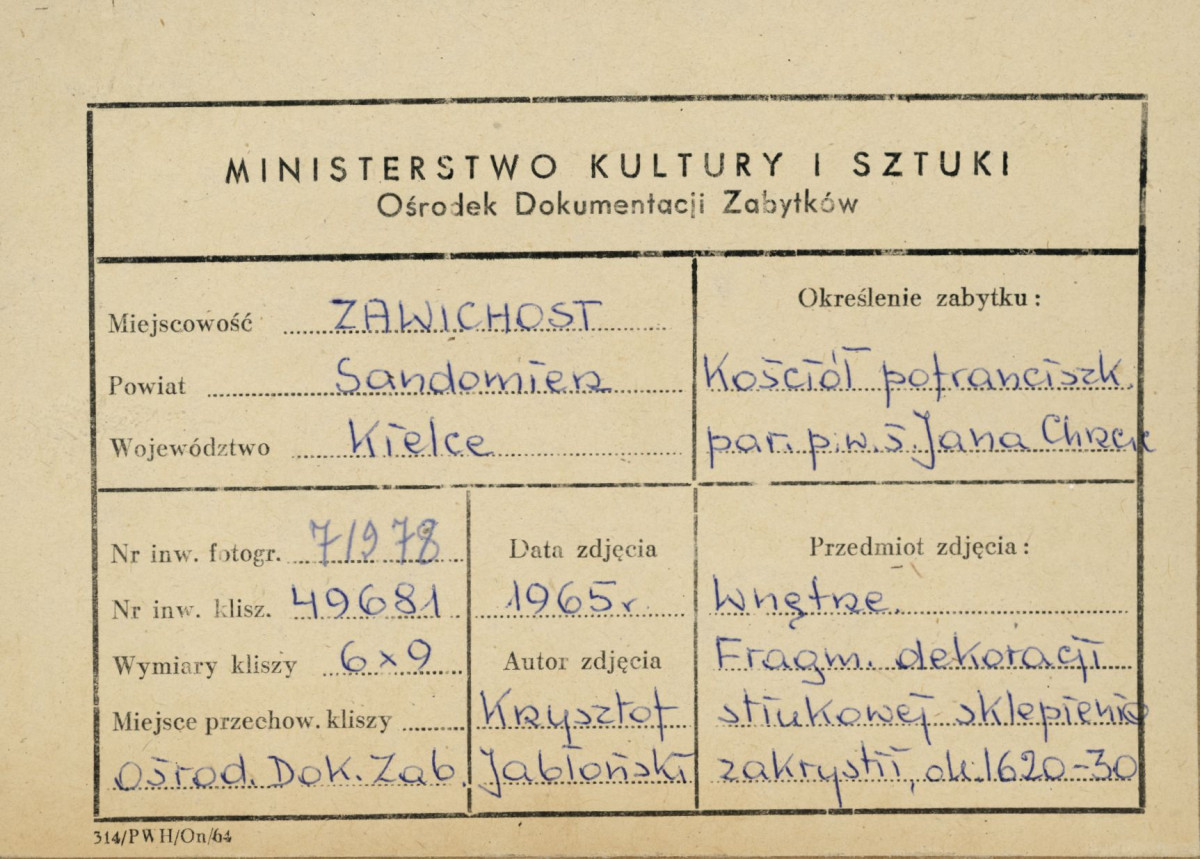 MINISTERSTWO KULTURY I SZTUKI
Ośrodek Dokumentacji Zabytków
Miejscowość ZAWICHOST
Powiat Sandomierz
Województwo Kielce
Określenie zabytku:
Kościół pofranciszk.
par. p.w. ś. Jana Chrzcic
Nr inw. fotogr. 71978
Nr inw. klisz. 49681
Wymiary kliszy 6x9
Miejsce przechow. kliszy
Ośrod. Dok. Zab.
Data zdjęcia
1965r.
Autor zdjęcia
Krzysztof
Jabłoński
Przedmiot zdjęcia:
Wnętrze.
Fragm. dekoracji
stiukowej sklepienia
zakrystii, ok. 1620-30
314/PWH/On/64